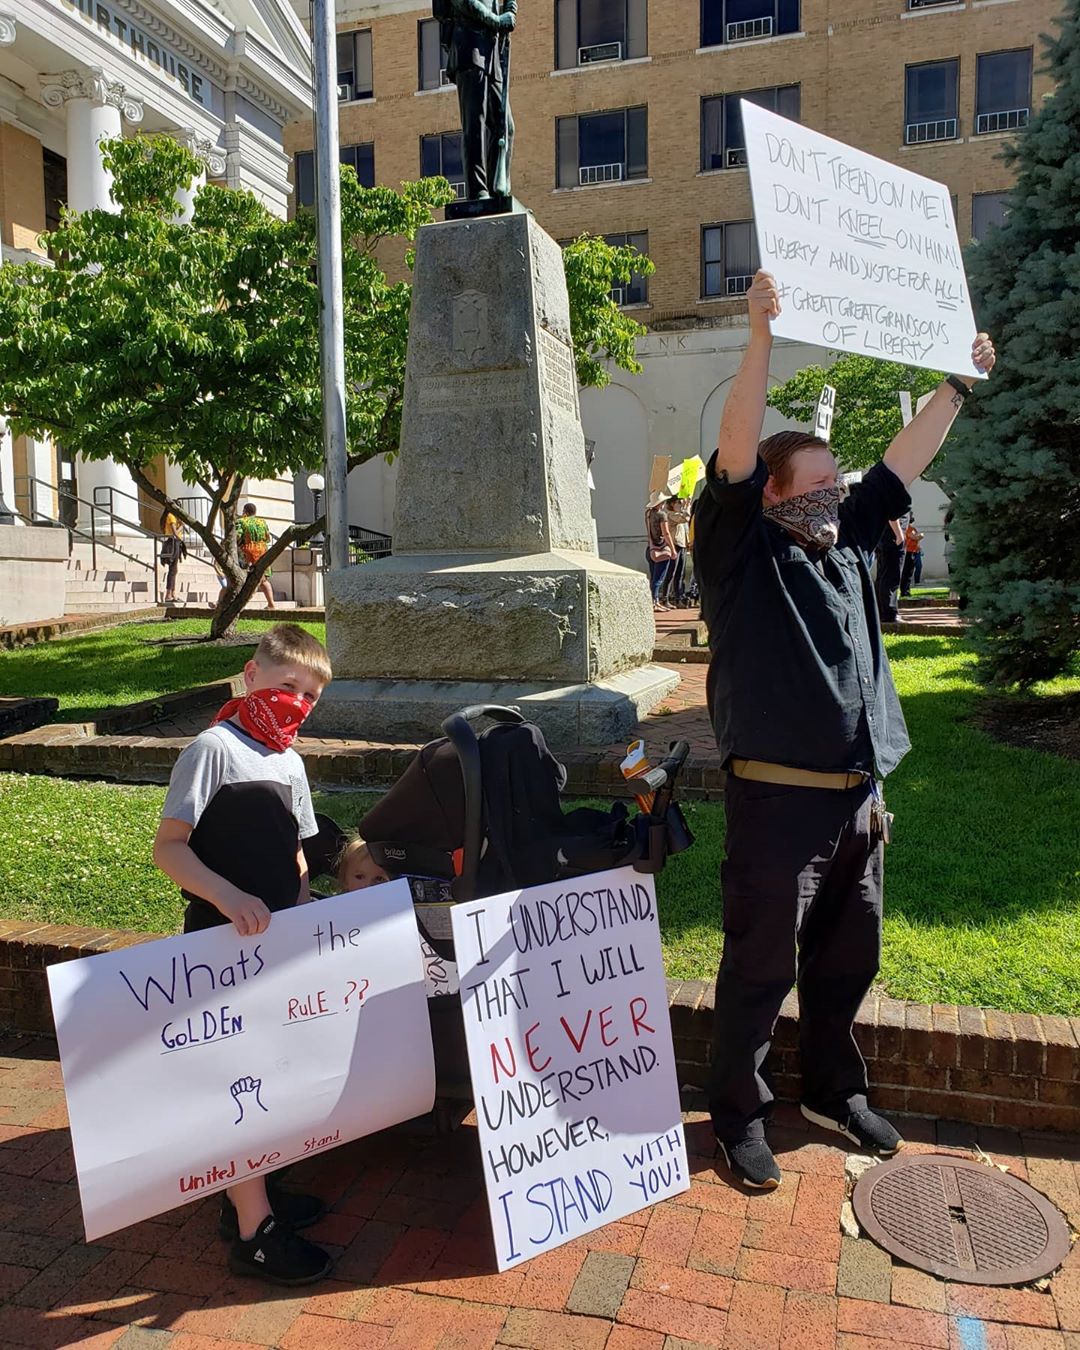 COURTHOUSE
DON'T TREAD ON ME!
DON'T KNEEL ON HIM!
LIBERTY AND JUSTICE FOR ALL!
#GREATGREATGRANDSONS
OF LIBERTY
NK
BL
LI
britax
Whats the
GOLDEN RULE??
United We Stand
I UNDERSTAND,
THAT I WILL
NEVER
UNDERSTAND.
HOWEVER,
I STAND WITH
YOU!